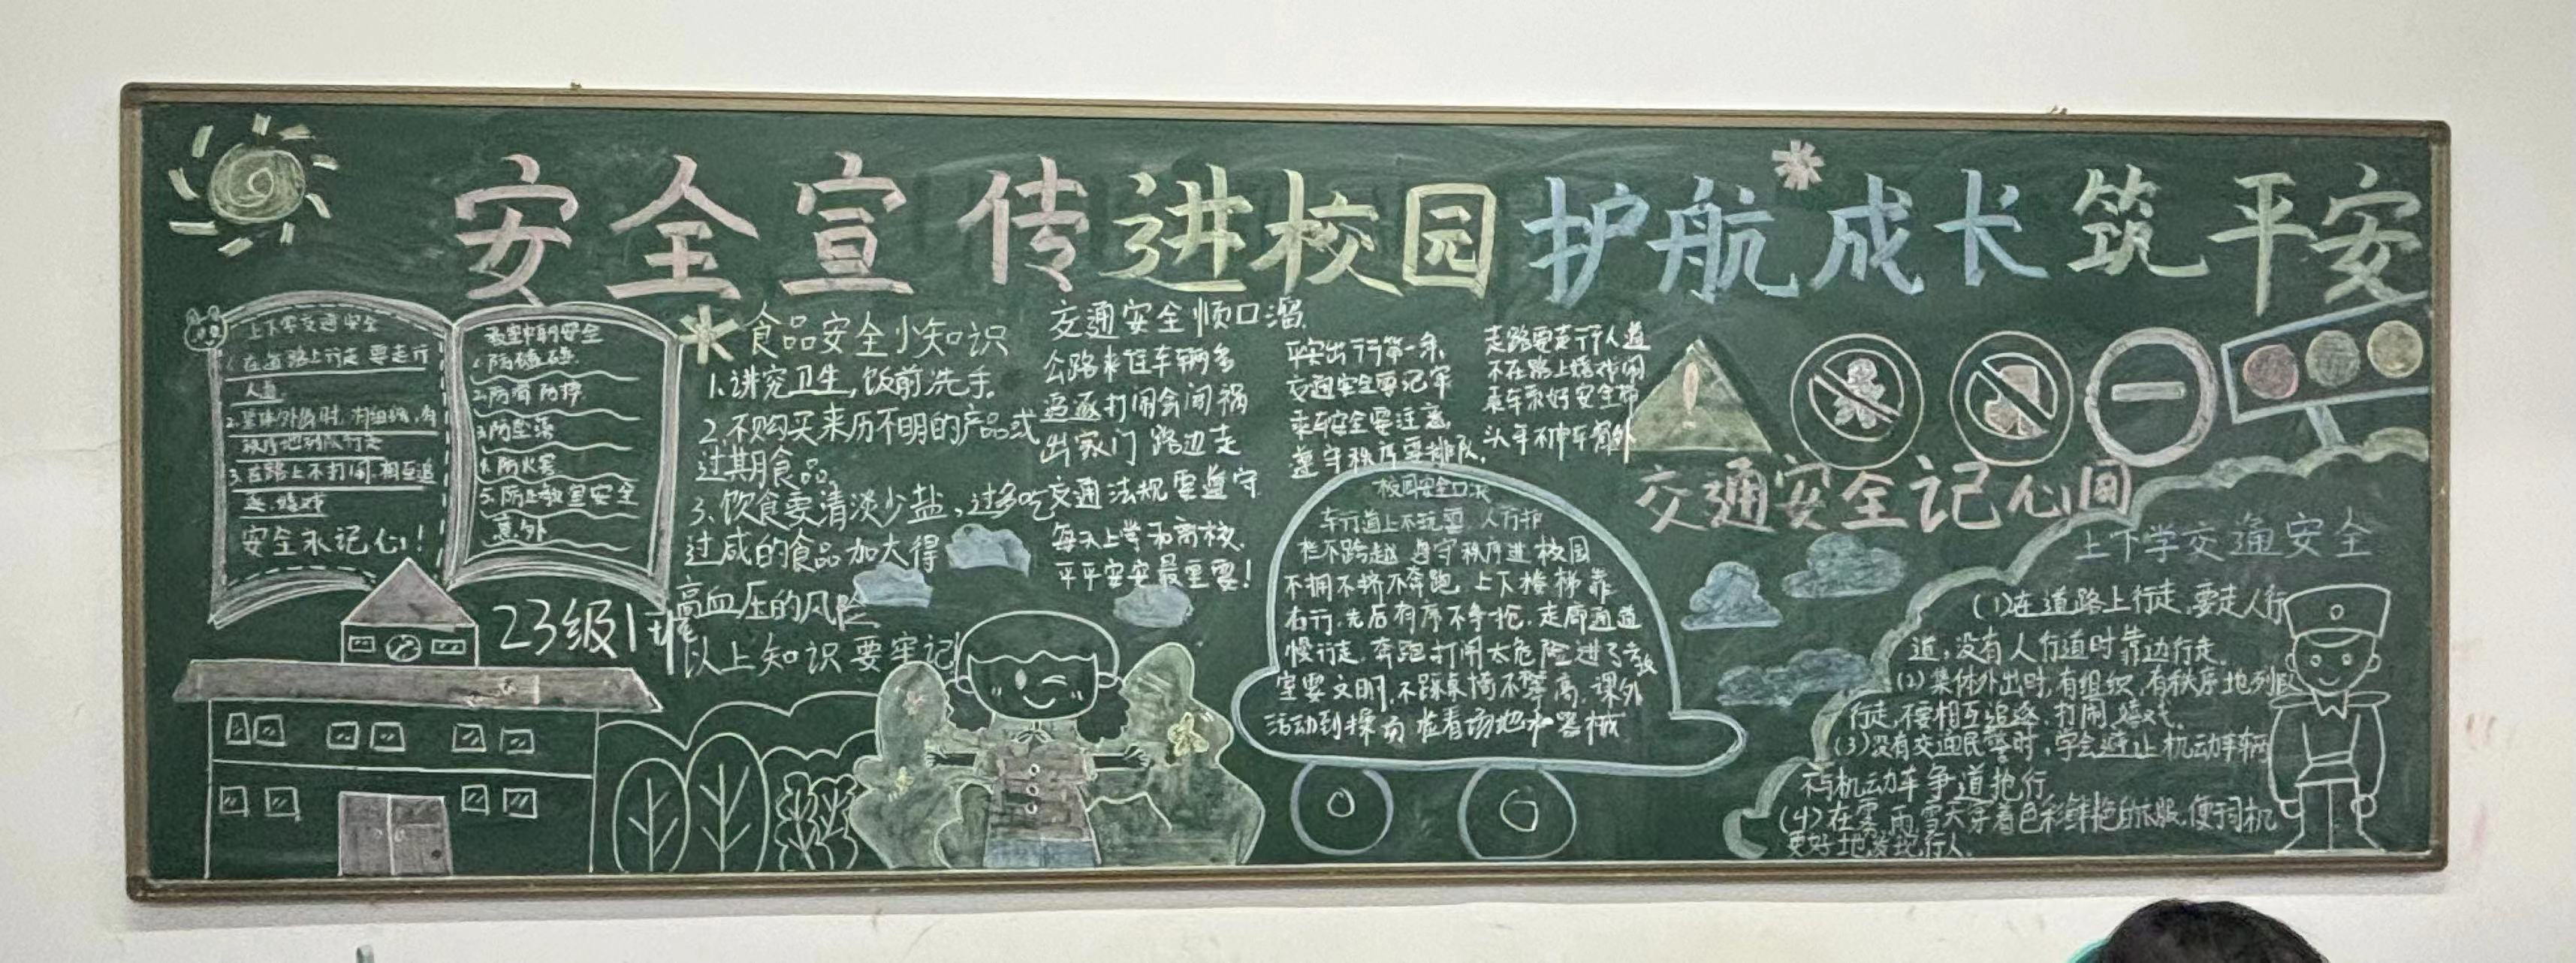 安全宣传进校园 护航成长筑平安
上下学交通安全
1.在道路上行走,要走行
人道.
2.集体外出时,有组织,有
秩序地列队行走
3.在路上不打闹.相互追
逐.嬉戏
安全永记心!
教室中的安全
1.防磕碰.
2.防滑 防摔.
3.防坠落
4.防火灾
5.防止教室安全
意外
23级1班
食品安全小知识
1.讲究卫生,饭前洗手.
2.不购买来历不明的产品或
过期食品.
3、饮食要清淡少盐,过多吃
过咸的食品加大得
高血压的风险
以上知识要牢记!
交通安全顺口溜
公路来往车辆多
追逐打闹会闯祸
出家门 路边走
交通法规要遵守
每天上学和离校.
平平安安最重要!
平安出行第一条,
交通安全要记牢
乘车安全要注意,
遵守秩序要排队.
走路要走行人道
不在路上嬉戏闹
乘车系好安全带
头手不伸车窗外
校园安全口诀
车行道上不玩耍.人行护
栏不跨越 遵守秩序进校园
不拥不挤不奔跑.上下楼梯靠
右行.先后有序不争抢.走廊通道
慢行走.奔跑打闹太危险进了教
室要文明.不踩桌椅不攀高.课外
活动到操场 准看场地和器械
交通安全记心间
上下学交通安全
(1)在道路上行走,要走人行
道,没有人行道时靠边行走.
(2)集体外出时,有组织,有秩序地列队
行走,不要相互追逐.打闹.嬉戏.
(3)没有交通民警时,学会避让机动车辆
不与机动车争道抢行
(4)在雾.雨.雪天穿着色彩鲜艳的衣服.便于司机
更好地发现行人.